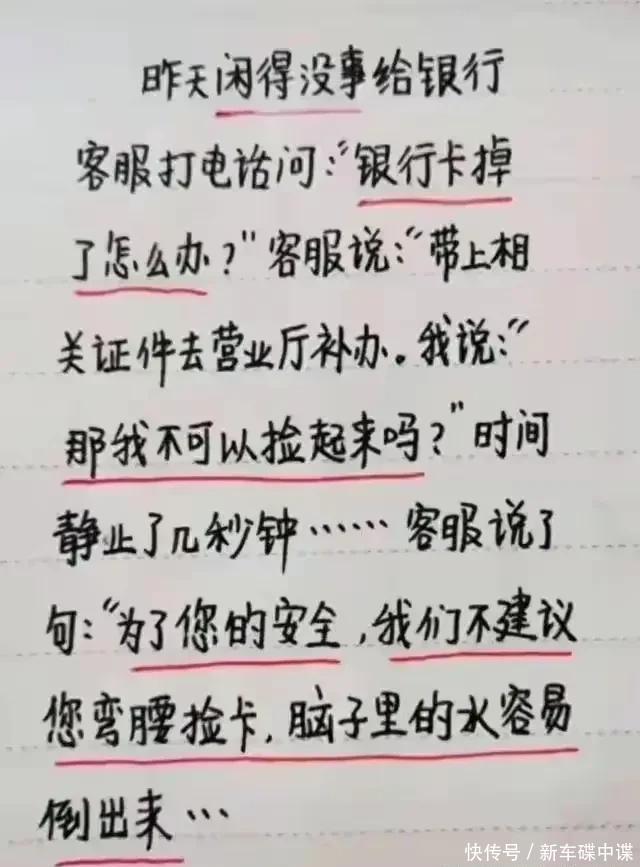 昨天闲得没事给银行
客服打电话问:“银行卡掉
了怎么办?”客服说:“带上相
关证件去营业厅补办。我说:“
那我不可以捡起来吗?”时间
静止了几秒钟……客服说了
句:“为了您的安全,我们不建议
您弯腰捡卡,脑子里的水容易
倒出来…
快传号/新车碟中谍